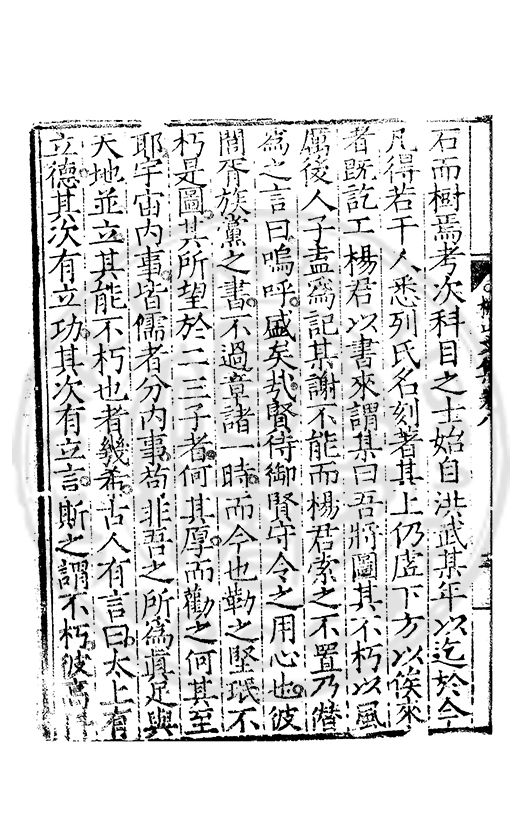 石而樹焉考次科目之士始自洪武某年以迄於今
凡得若干人悉列氏名刻著其上仍虛下方以俟來
者既訖工楊君以書來謂某曰吾將圖其不朽以風
厲後人子盍爲記某謝不能而楊君索之不置乃僣
爲之言曰嗚呼盛矣㦲賢侍御賢守令之用心也彼
閭胥族黨之書不過章諸一時而今也勒之堅珉不
朽是圖其所望於二三子者何其厚而勸之何其至
耶宇宙内事皆儒者分内事苟非吾之所爲眞足與
天地並立其能不朽也者幾希古人有言曰太上有
立德其次有立功其次有立言斯之謂不朽彼
文集卷八